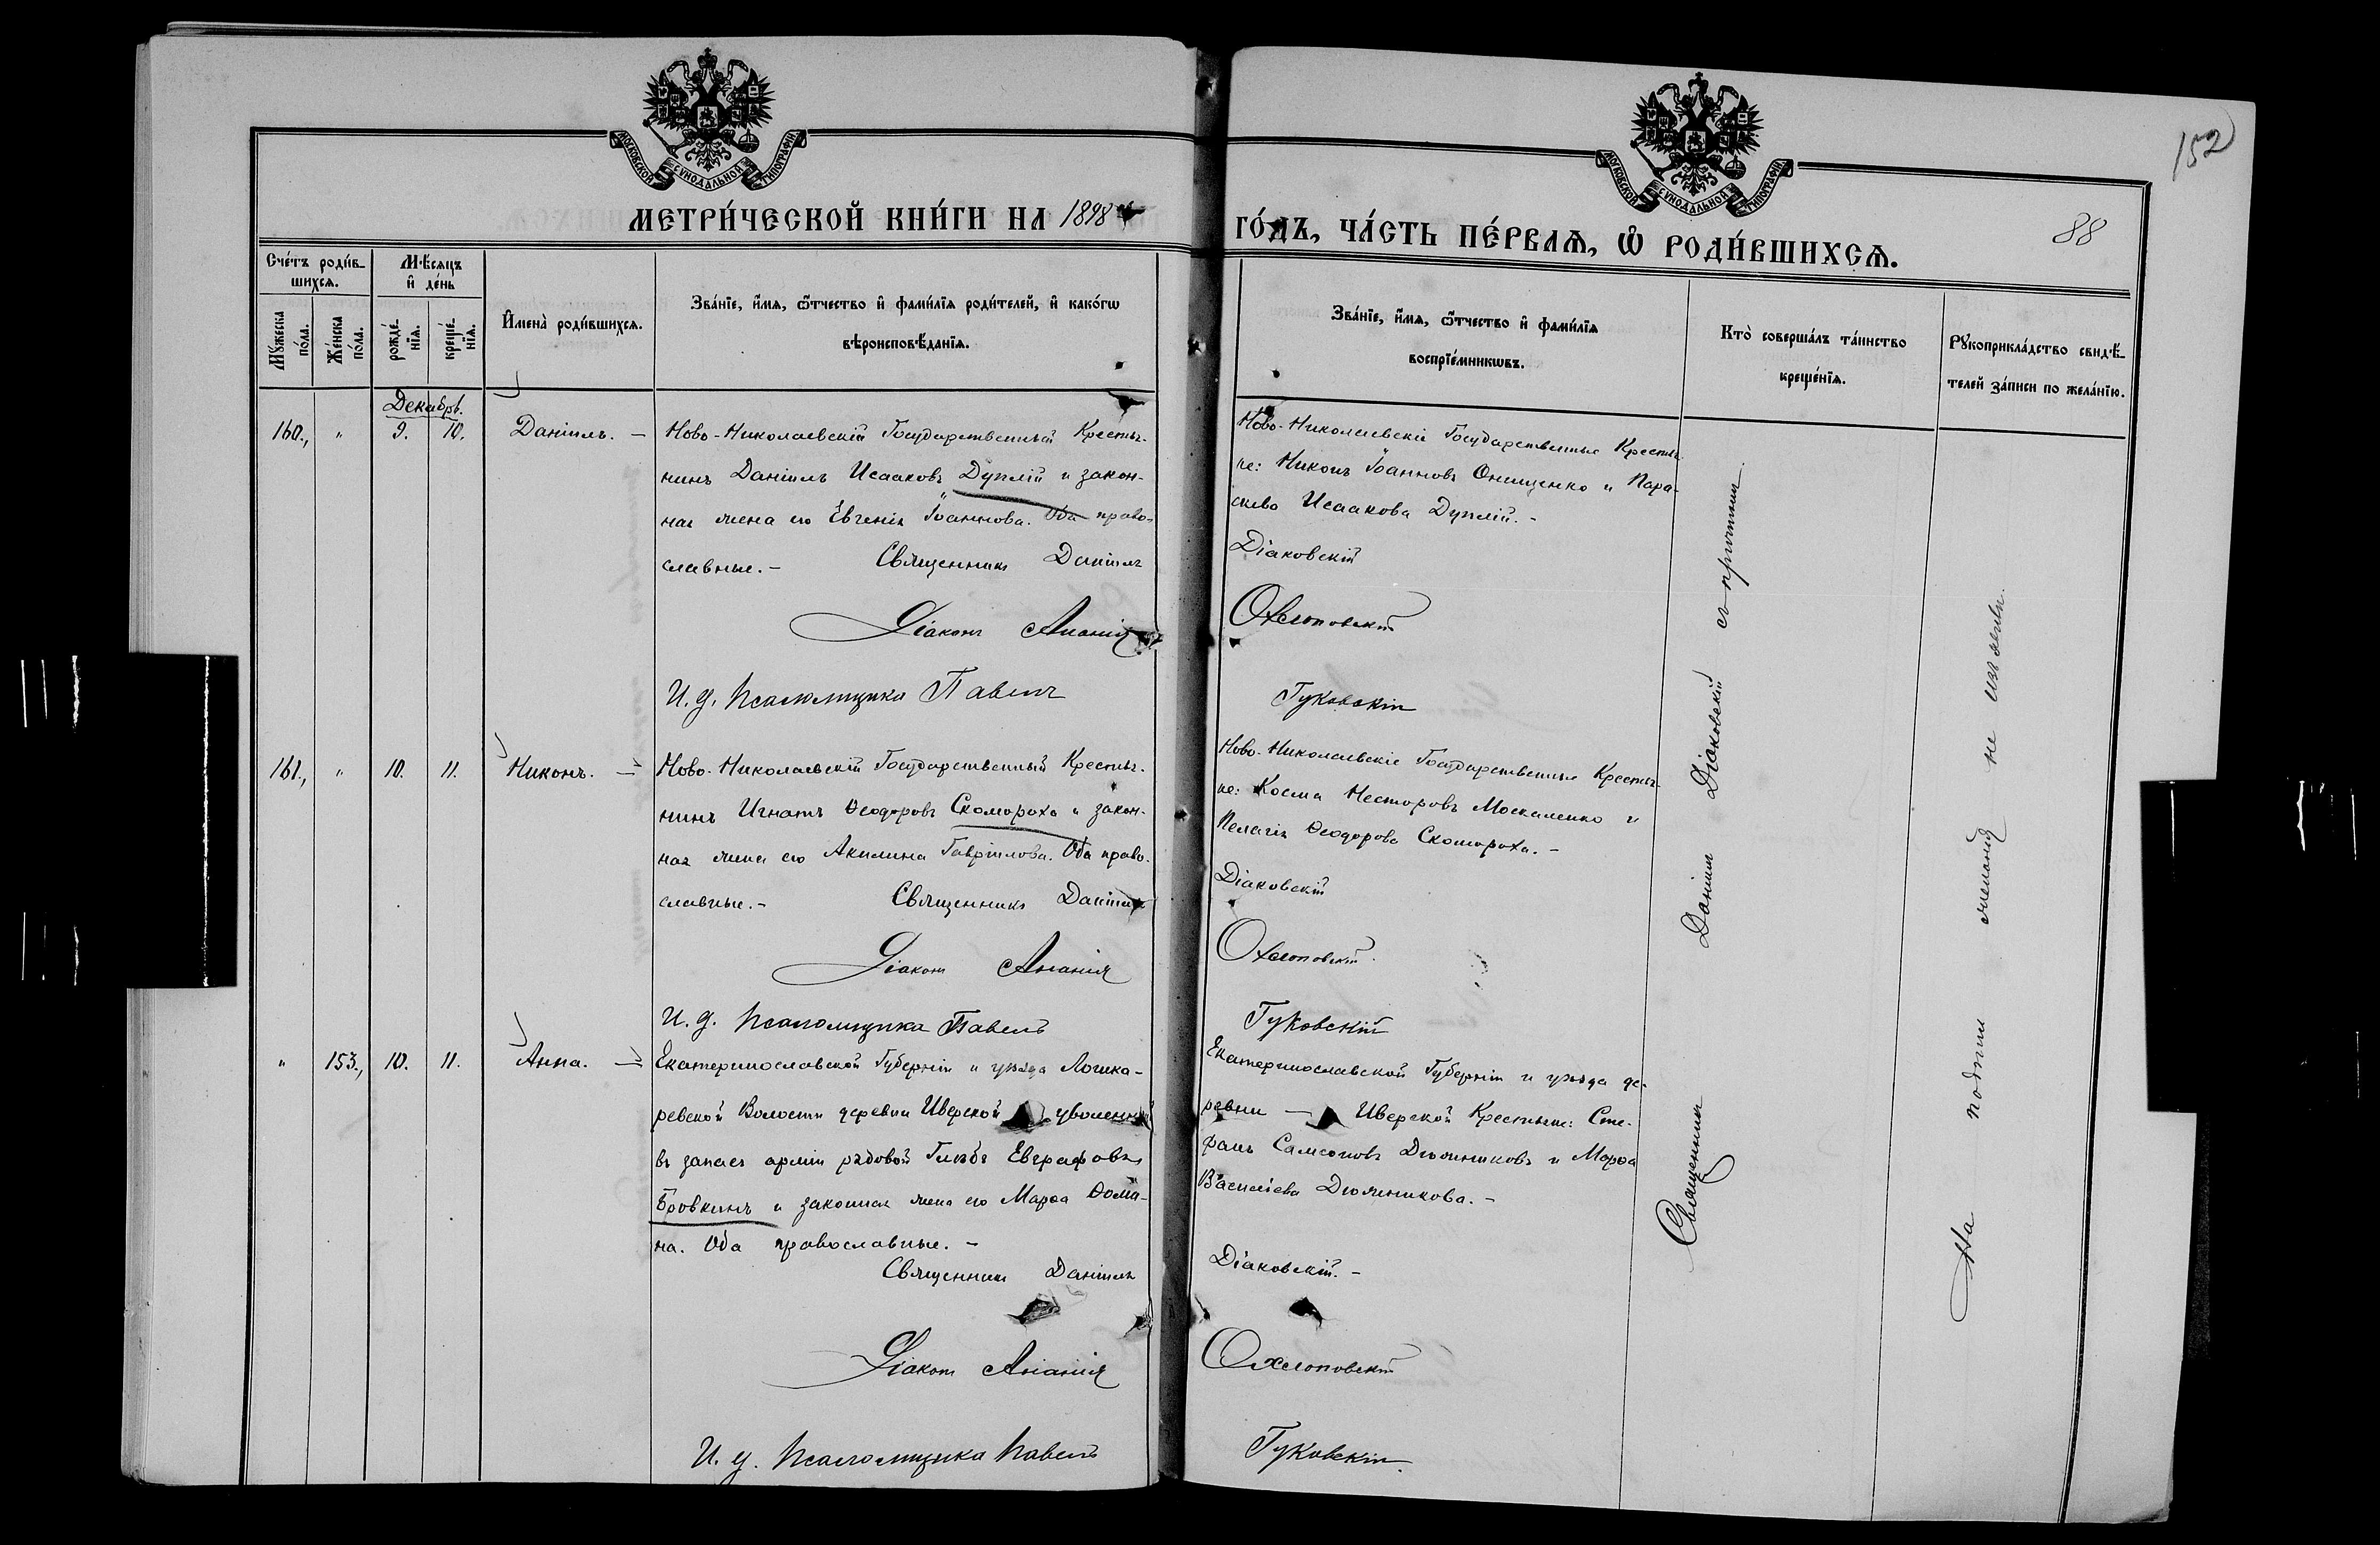 МОСКОВСКОЙ СѴНОДАЛЬНОЙ ТИПОГРАФІИ
МОСКОВСКОЙ СѴНОДАЛЬНОЙ ТИПОГРАФІИ
152
МЕТРИ́ЧЕСКОЙ КНИ́ГИ НА 1898
ГО́ДЪ, ЧА́СТЬ ПЕ́РВАѦ, Ѽ РОДИ́ВШИХСѦ.
88
Сче́тъ роди́в-
шихсѧ.
Мѣ́сяцъ
и҆ де́нь
Мꙋ́жеска
по́ла.
Же́нска
по́ла.
рожде́-
нїѧ.
креще́-
нїѧ.
И҆мена̀ роди́вшихсѧ.
Зва́нїе, и҆́мѧ, ѻ҆́тчество и҆ фами́лїѧ роди́телей, и҆ како́гѡ
вѣроисповѣ́данїѧ.
Зва́нїе, и҆́мѧ, ѻ҆́тчество и҆ фами́лїѧ
воспрїе́мникѡвъ.
Кто̀ соверша́лъ та́инство
креще́нїѧ.
Рꙋкоприкла́дство свидѣ́-
телей за́писи по жела́нїю.
Декабрь.
160., " 9. 10. Даніилъ. —
Ново-Николаевскій Государственный Крестья-
нинъ Даніилъ Исааковъ Дуплій и закон-
ная жена его Евгенія Іоаннова. Оба право-
славные. — Священникъ Даніилъ
Діаконъ Ананія
И. д. Псаломщика Павелъ
Ново-Николаевскіе Государственные Крестья-
не: Никонъ Іоанновъ Онищенко и Пара-
скева Исаакова Дуплій. -
Діаковскій
Охлоповскій
Гуковскій
161., " 10. 11. Никонъ. —
Ново-Николаевскій Государственный Крестья-
нинъ Игнатъ Ѳеодоровъ Скомороха и закон-
ная жена его Акилина Гавріилова. Оба право-
славные. - Священникъ Даніилъ
Діаконъ Ананія
И. д. Псаломщика Павелъ
Ново-Николаевскіе Государственные Крестья-
не: Косма Несторовъ Москаленко и
Пелагія Ѳеодорова Скомороха. -
Діаковскій
Охлоповскій
Гуковскій
" 153., 10. 11. Анна. —
Екатеринославской Губерніи и уѣзда Лошка-
ревской Волости деревни Иверской уволенный
въ запасъ арміи рядовой Глѣбъ Евграфовъ
Бровкинъ и законная жена его Марѳа Ѳоми-
на. Оба православные. -
Священникъ Даніилъ
Діаконъ Ананія
И. д. Псаломщика Павелъ
Екатеринославской Губерніи и уѣзда де-
ревни — Иверской Крестьяне: Сте-
фанъ Самсоновъ Дюжниковъ и Марѳа
Васильева Дюжникова. -
Діаковскій. -
Охлоповскій
Гуковскій.
Священникъ Даніилъ Діаковскій съ причтомъ
На подпись желанія не изъявили.